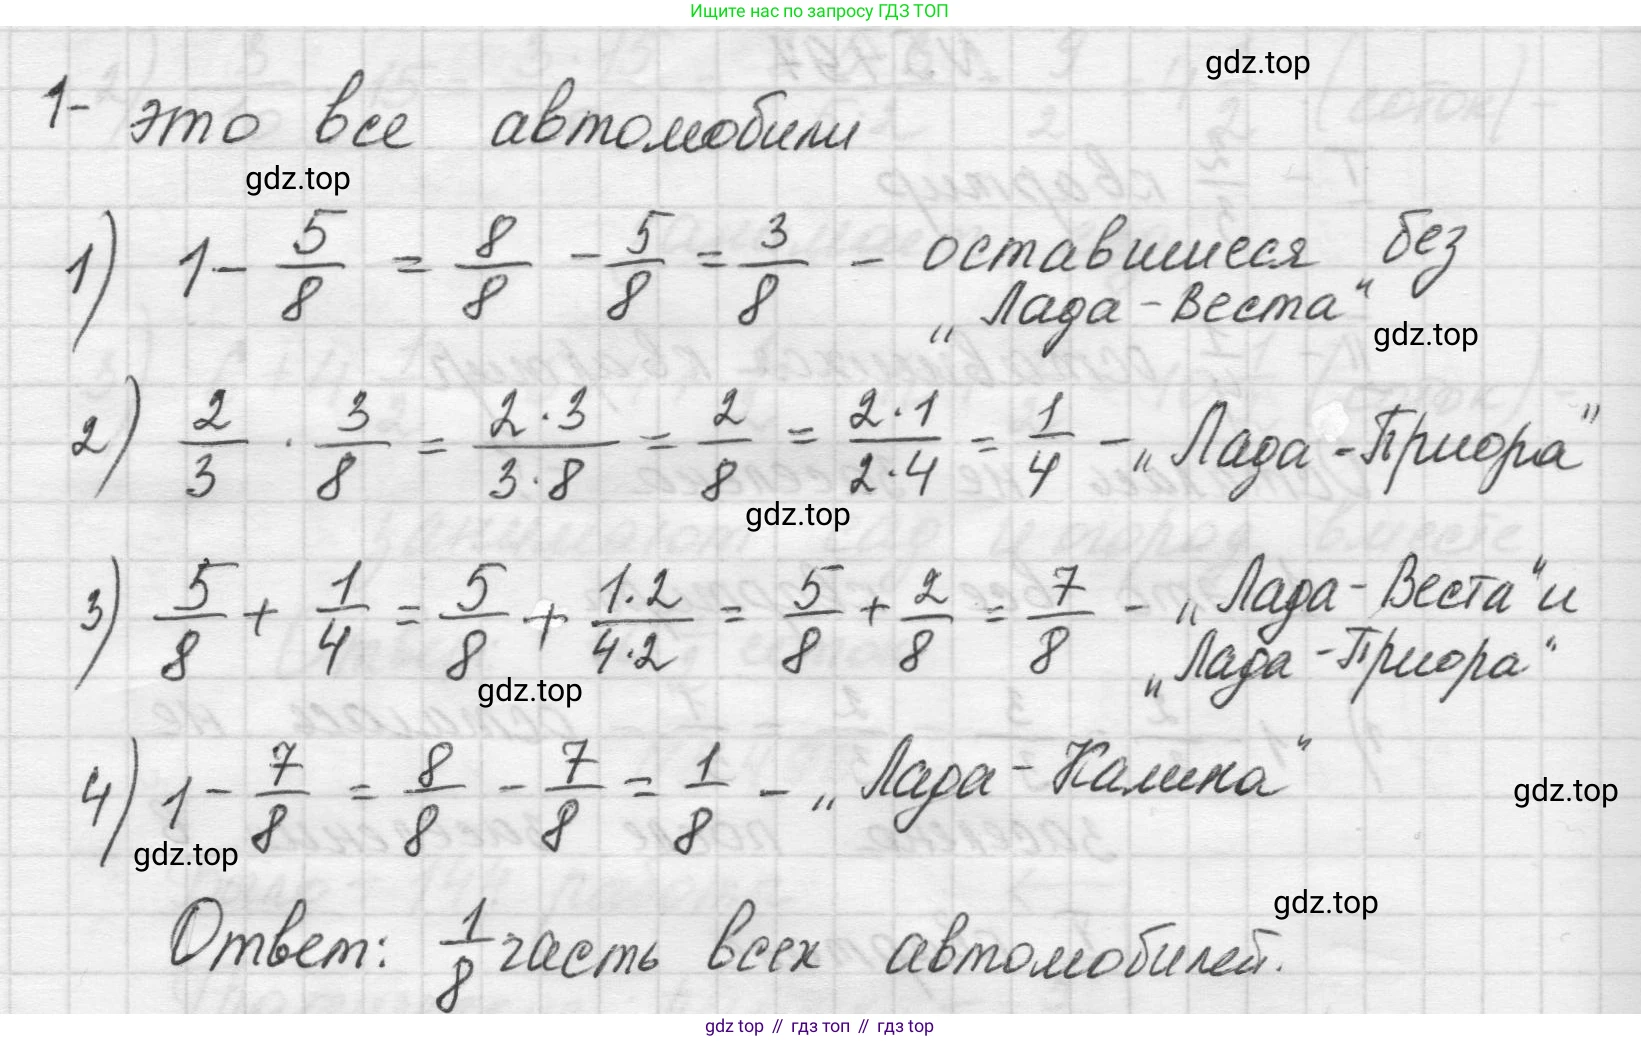 Ищите нас по запросу ГДЗ ТОП
gdz.top
1- это все автомобили
gdz.top
1) 1 - 5/8 = 8/8 - 5/8 = 3/8 - оставшиеся без
„Лада-Веста“
gdz.top
2) 2/3 · 3/8 = 2·3/3·8 = 2/8 = 2·1/2·4 = 1/4 - „Лада-Приора“
gdz.top
3) 5/8 + 1/4 = 5/8 + 1·2/4·2 = 5/8 + 2/8 = 7/8 - „Лада-Веста“ и
„Лада-Приора“
gdz.top
4) 1 - 7/8 = 8/8 - 7/8 = 1/8 - „Лада-Калина“
gdz.top
gdz.top
gdz.top
Ответ: 1/8 часть всех автомобилей.
gdz top // гдз топ // гдз top